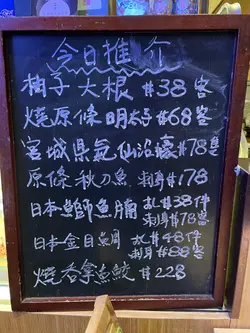 今日推介
柚子大根 $38客
燒原條明太子 $68客
宮城縣氣仙沼蠔 $78隻
原條秋刀魚 刺身$178
日本鰤魚腩 $38件
刺身$78客
日本金目鯛 $48件
刺身$88客
燒吞拿魚鮫 $228